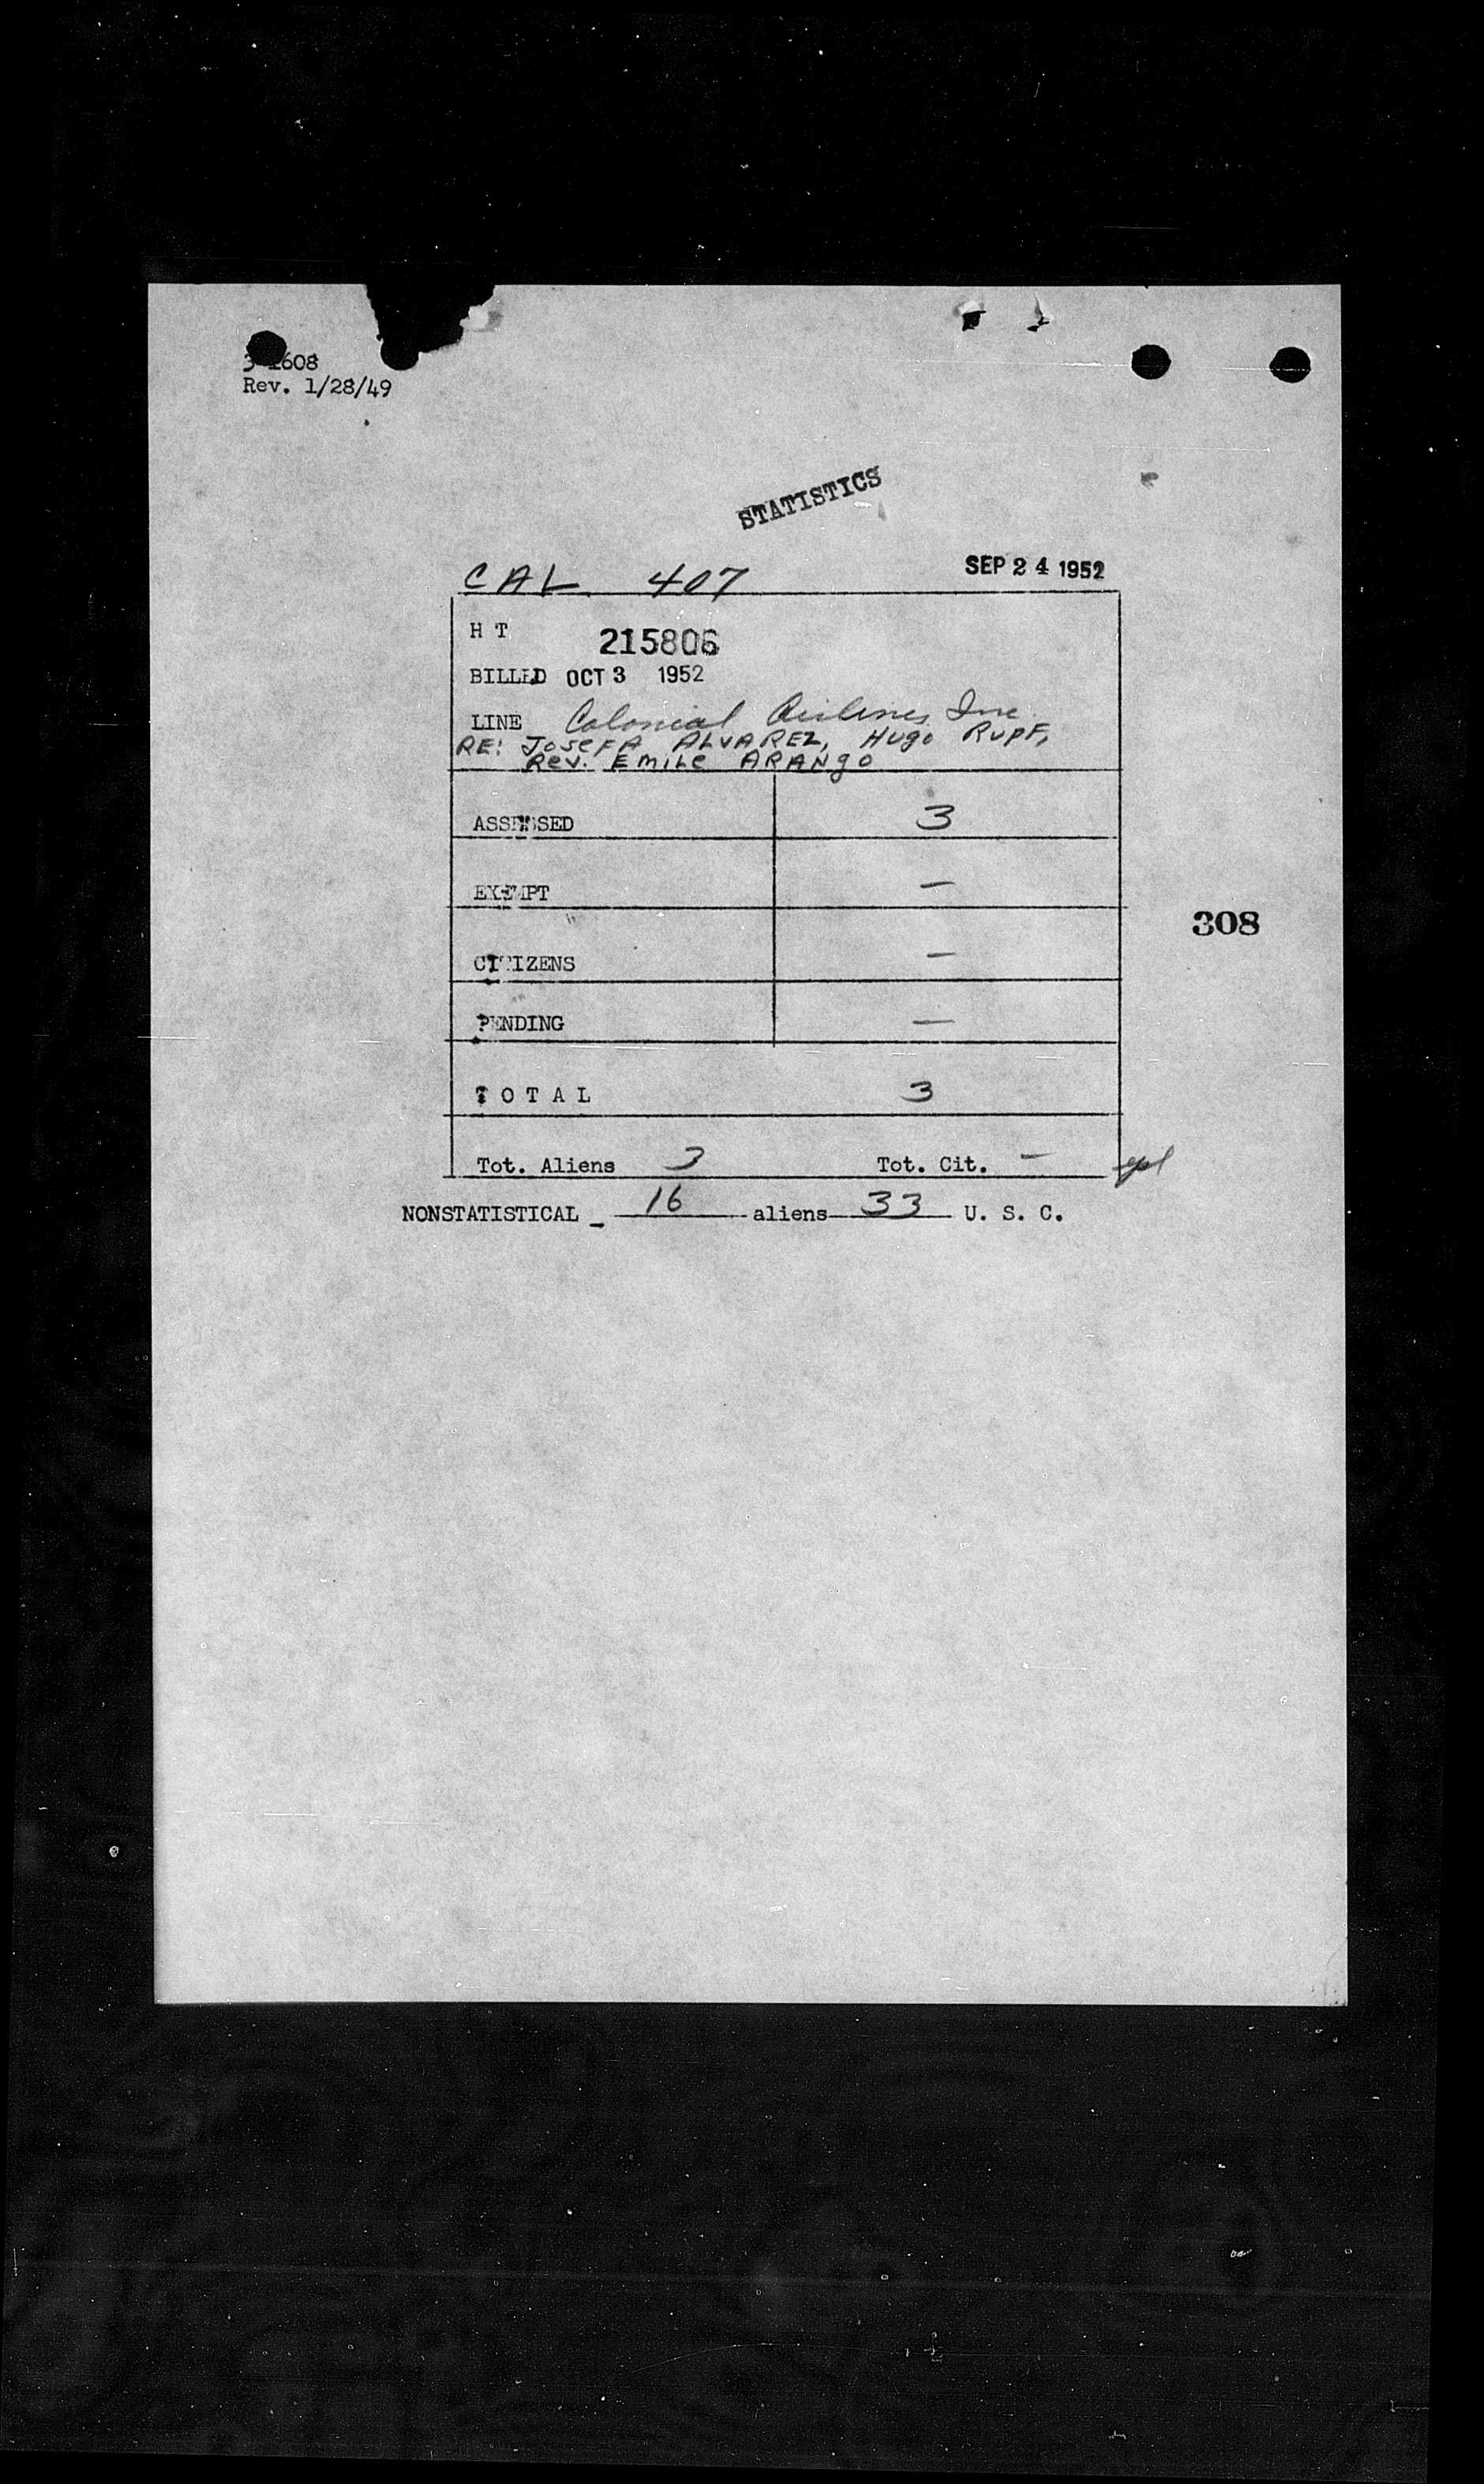 3-1608
Rev. 1/28/49
STATISTICS
CAL 407 SEP 24 1952
H T 215806
BILLED OCT 3 1952
LINE Colonial Airlines Inc.
RE: JOSEFA ALVAREZ, Hugo RupF,
Rev. EmiLe ARANgO
ASSESSED 3
EXEMPT —
308
CITIZENS —
PENDING —
T O T A L 3
Tot. Aliens 3 Tot. Cit. —
NONSTATISTICAL - 16 aliens 33 U. S. C.